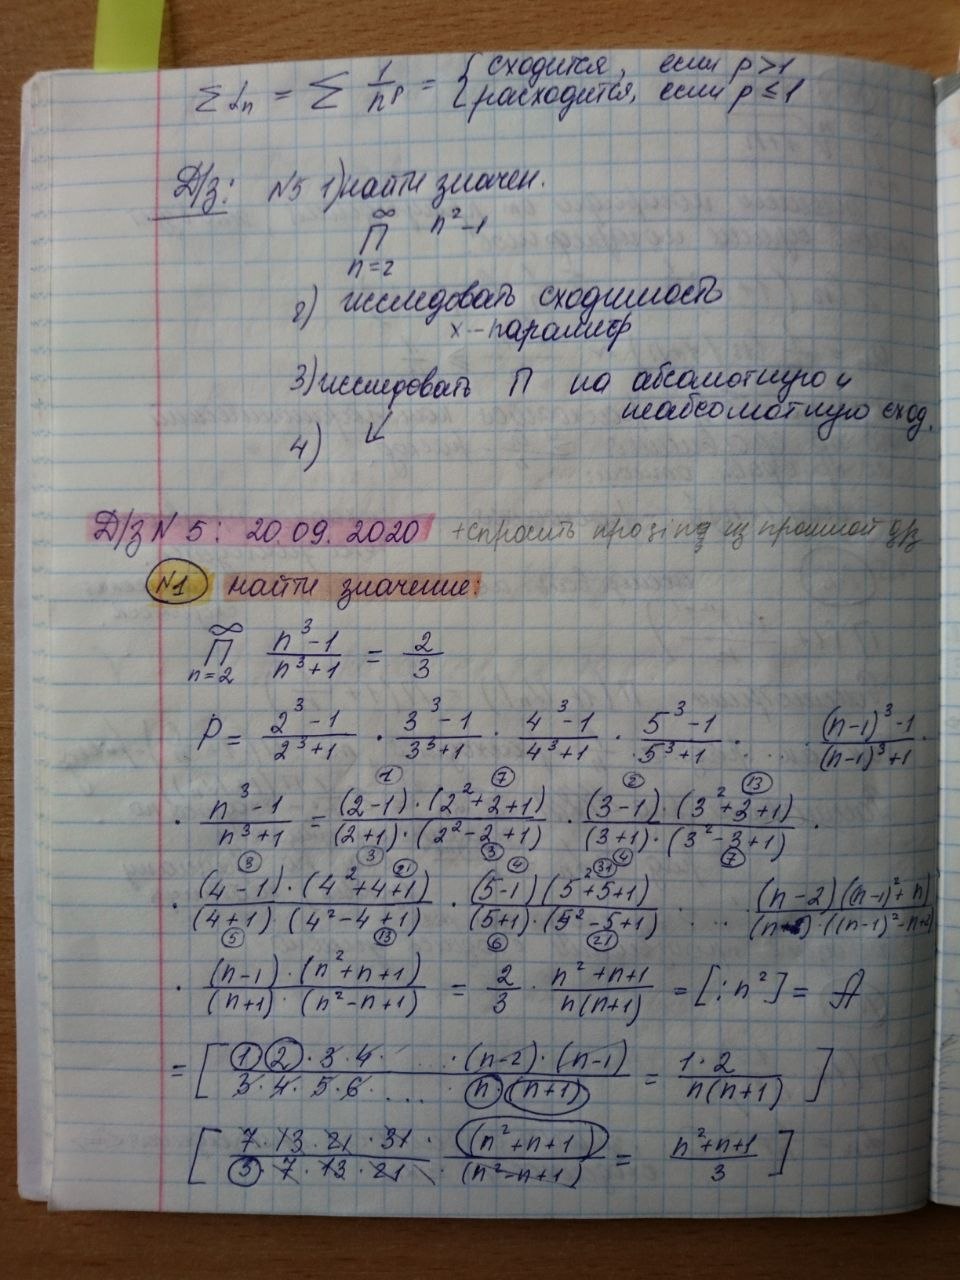 ∑ αₙ = ∑ 1/nᵖ = { сходится, если p > 1
расходится, если p ≤ 1
Д/з: N5 1) найти значен.
∞ ∏ n=2 n²-1
2) исследовать сходимость
x - параметр
3) исследовать П на абсолютную и
неабсолютную сход.
4) ↙
Д/з N 5: 20.09.2020 + спросить про из прошлой д/з
N1 найти значение:
∞ ∏ n=2 (n³-1)/(n³+1) = 2/3
P = (2³-1)/(2³+1) · (3³-1)/(3³+1) · (4³-1)/(4³+1) · (5³-1)/(5³+1) · .... · ((n-1)³-1)/((n-1)³+1) ·
· (n³-1)/(n³+1) = ((2-1)·(2²+2+1))/((2+1)·(2²-2+1)) · ((3-1)·(3²+3+1))/((3+1)·(3²-3+1)) ·
· ((4-1)·(4²+4+1))/((4+1)(4²-4+1)) · ((5-1)(5²+5+1))/((5+1)·(5²-5+1)) · .... ((n-2)((n-1)²+n))/(n·((n-1)²-n+2))
· ((n-1)·(n²+n+1))/((n+1)·(n²-n+1)) = 2/3 · (n²+n+1)/(n(n+1)) = [: n²] = A
= [ (1·2·3·4· .... ·(n-2)·(n-1))/(3·4·5·6· .... n(n+1)) = (1·2)/(n(n+1)) ]
[ (7·13·21·31· (n²+n+1))/(3·7·13·21· (n²-n+1)) = (n²+n+1)/3 ]